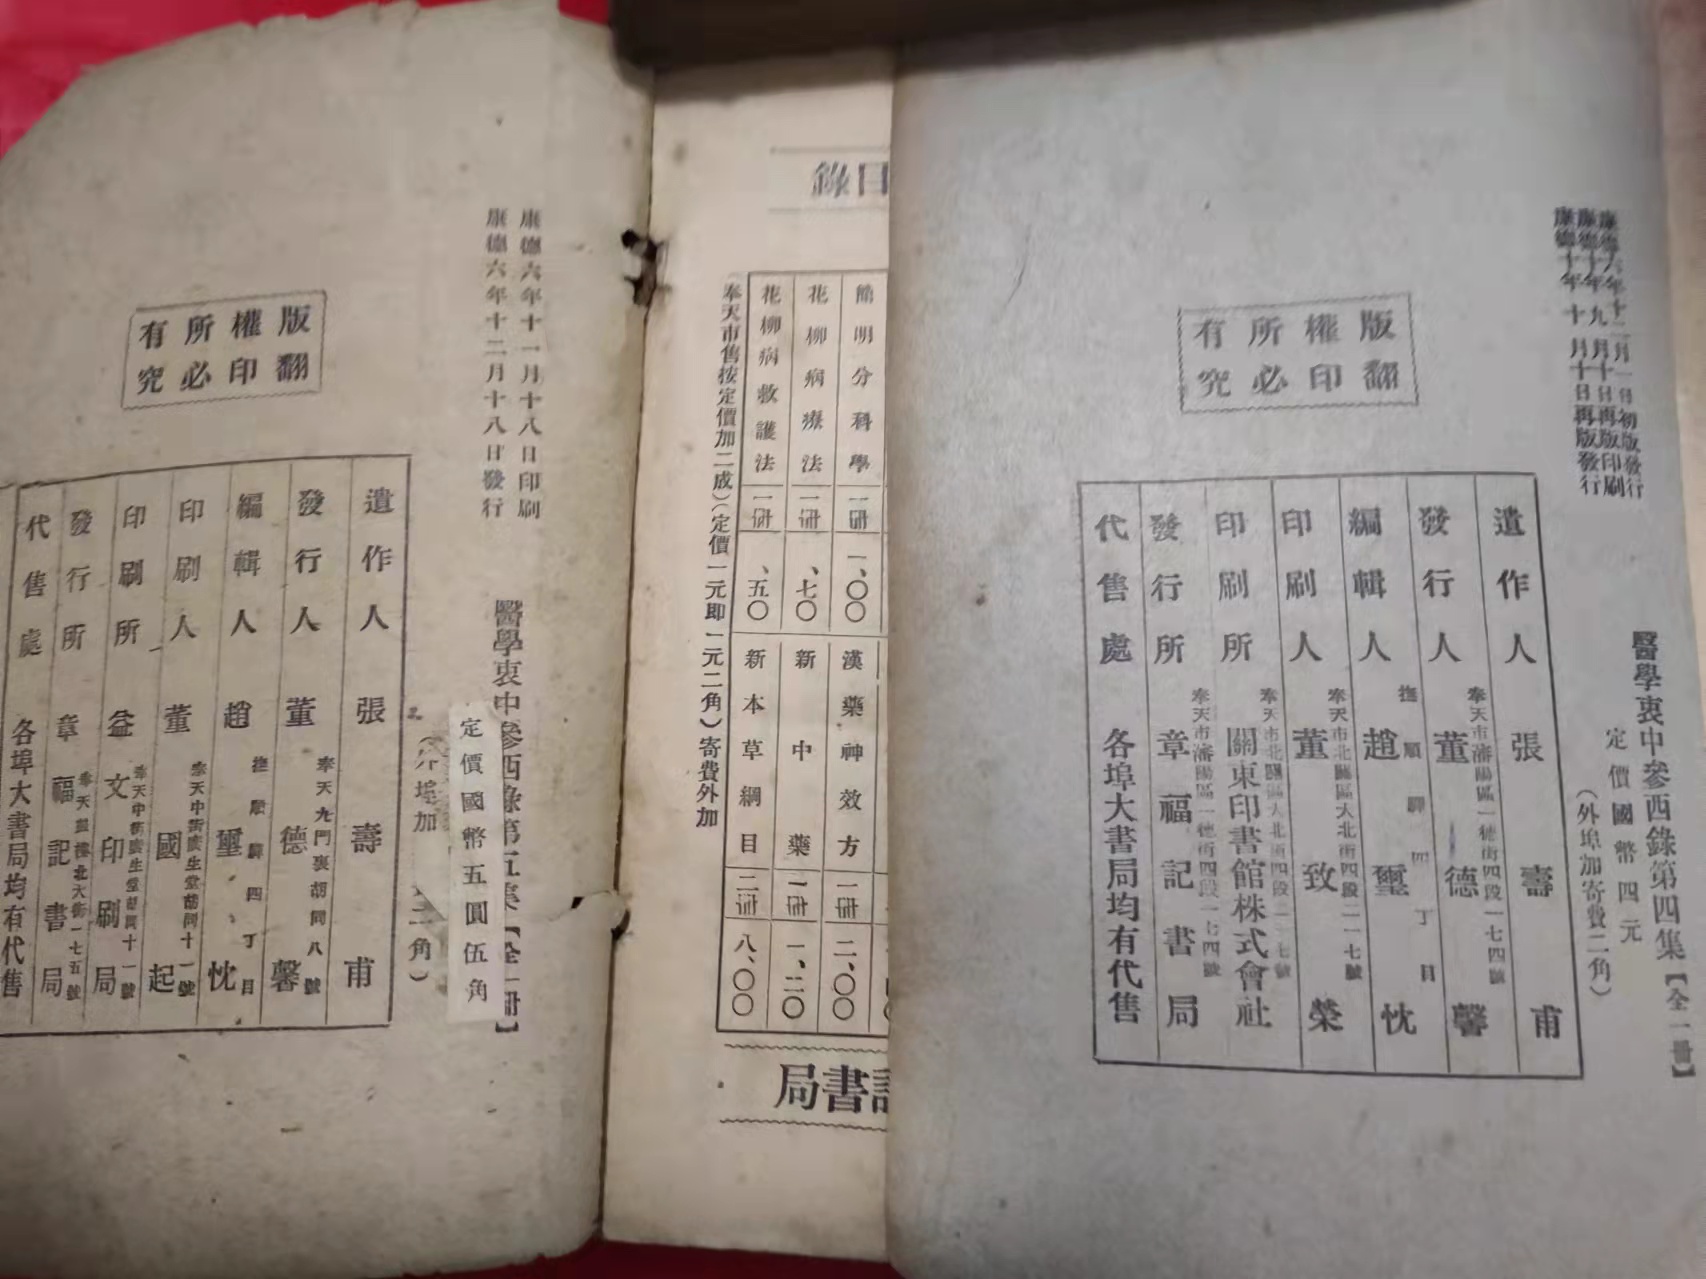 康德六年十二月一日初版發行
康德十年九月十日再版印刷
康德十年十月十日再版發行
版權所有
翻印必究
醫學衷中參西錄第四集【全一冊】
定價國幣四元
（外埠加寄費二角）
遺作人 張壽甫
發行人 奉天市瀋陽區一德街四段一七四號 董德馨
編輯人 撫順驛四丁目 趙璽忱
印刷人 奉天市北關區大北街四段二一七號 董致榮
印刷所 奉天市北關區大北街四段二一七號 關東印書館株式會社
發行所 奉天市瀋陽區一德街四段一七四號 章福記書局
代售處 各埠大書局均有代售
目錄
簡明分科學 一冊 一、〇〇
花柳病療法 一冊 、七〇
花柳病救護法 一冊 、五〇
漢藥神效方 一冊 二、〇〇
新中藥 一冊 一、二〇
新本草綱目 二冊 八、〇〇
（奉天市售按定價加二成）（定價一元即一元二角）寄費外加
書局
康德六年十一月十八日印刷
康德六年十二月十八日發行
版權所有
翻印必究
醫學衷中參西錄第五集【全一冊】
定價國幣五圓伍角
埠加 二角）
遺作人 張壽甫
發行人 奉天九門裏胡同八號 董德馨
編輯人 撫順驛四丁目 趙璽忱
印刷人 奉天中街廣生堂胡同十一號 董國起
印刷所 奉天中街廣生堂胡同十一號 益文印刷局
發行所 奉天鼓樓北大街一七五號 章福記書局
代售處 各埠大書局均有代售